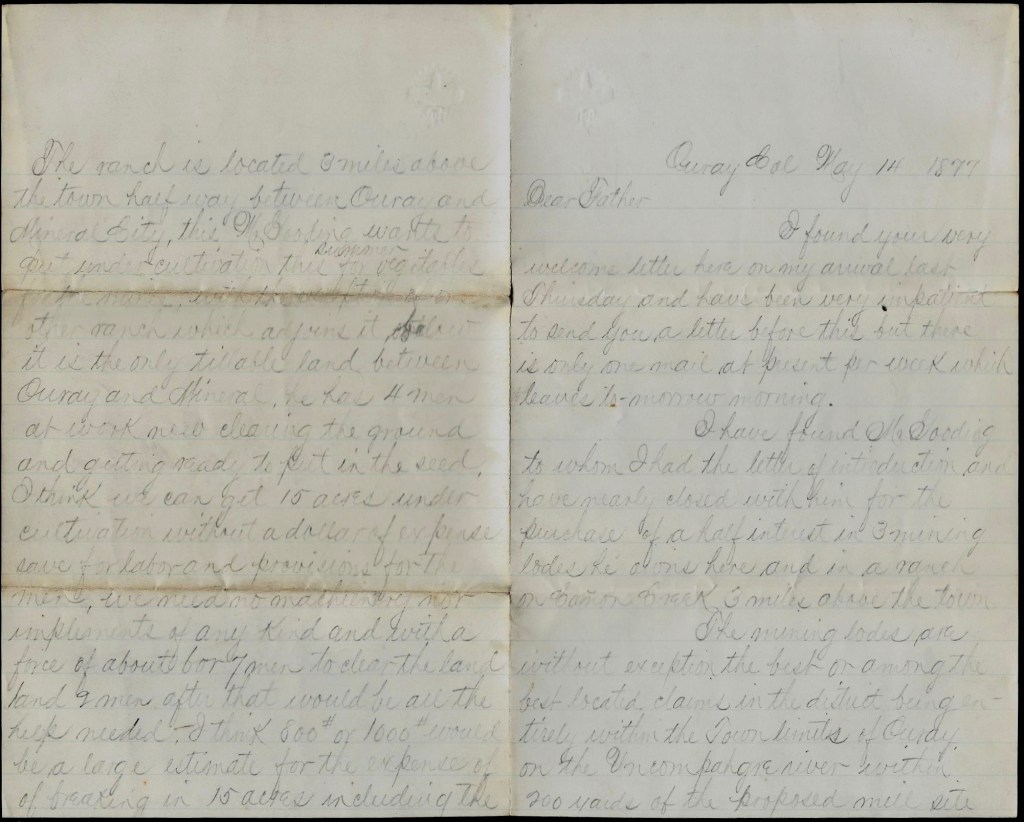 Ouray Col May 14 1877
Dear Father
I found your very
welcome letter here on my arrival last
Thursday and have been very impatient
to send you a letter before this but there
is only one mail at present per week which
leaves to-morrow morning.
I have found Mr Gooding
to whom I had the letter of introduction and
have nearly closed with him for the
purchase of a half interest in 3 mining
lodes he owns here and in a ranch
on Cañon Creek 3 miles above the town.
The mining lodes are
without exception the best or among the
best located claims in the district being en-
tirely within the Town limits of Ouray
on the Uncompahgre river within
200 yards of the proposed mill site
The ranch is located 3 miles above
the town half way between Ouray and
Mineral City, this Mr Gooding wants to
put under cultivation this summer for vegetables
with the
other ranch which adjoins it
it is the only tillable land between
Ouray and Mineral. he has 4 men
at work now clearing the ground
and getting ready to put in the seed.
I think we can get 15 acres under
cultivation without a dollar of expense
save for labor and provisions for the
men, we need no machinery nor
impliments of any kind and with a
force of about 6 or 7 men to clear the land
and 2 men after that would be all the
help needed. I think 800# or 1000# would
be a large estimate for the expense of
of breaking in 15 acres including the